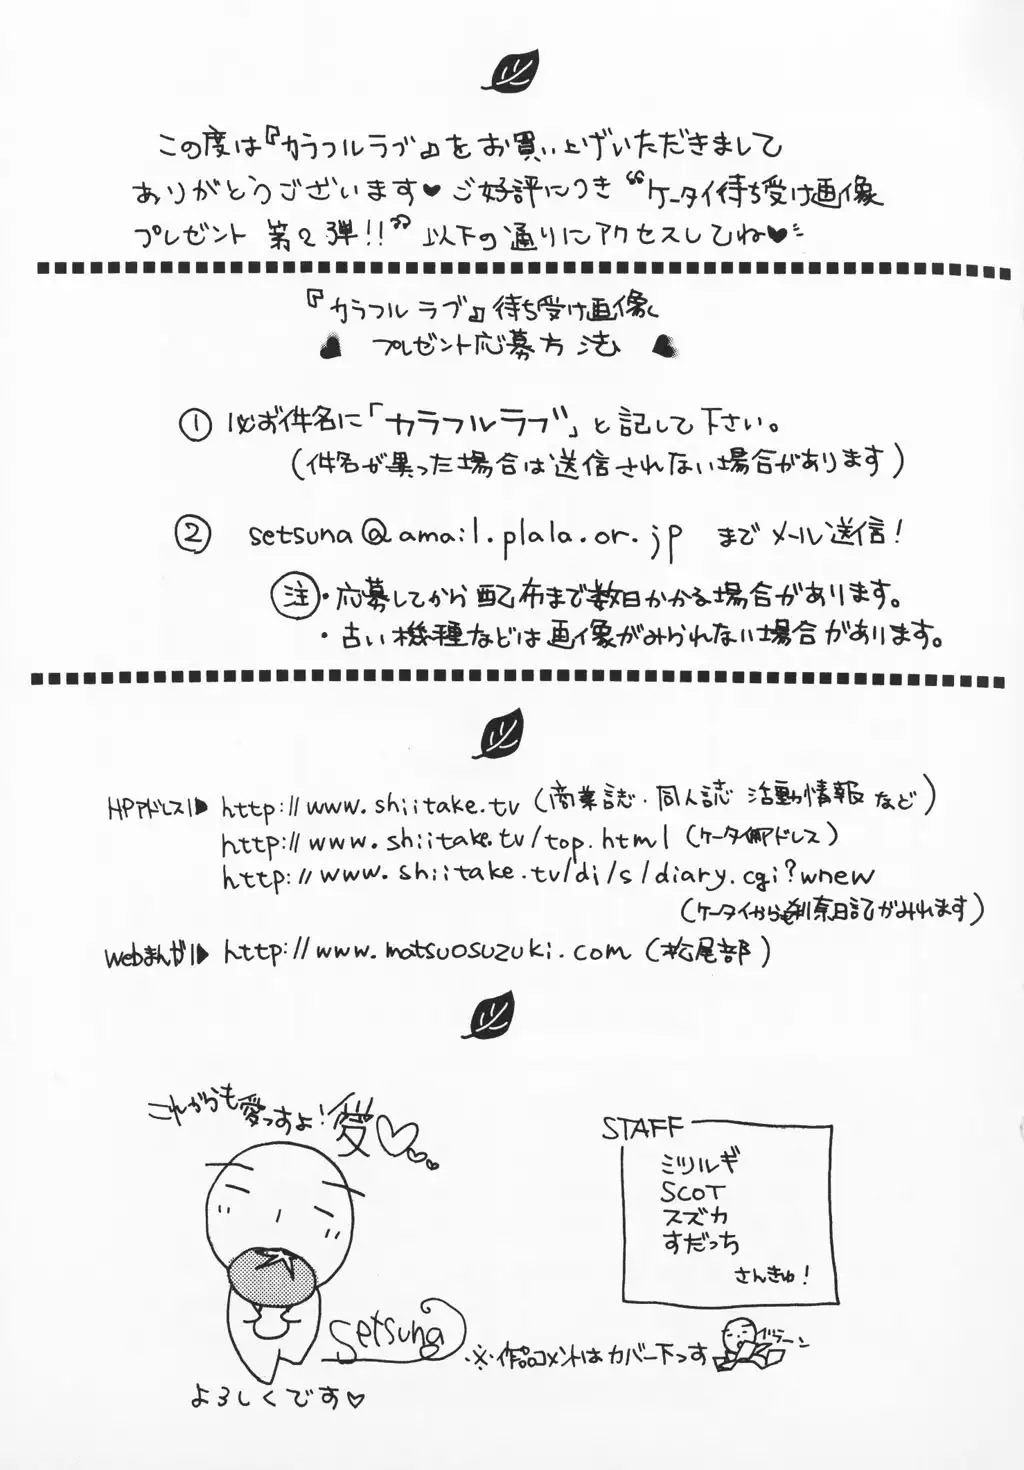 この度は『カラフルラブ』をお買い上げいただきまして
ありがとうございます♥ご好評につき“ケータイ待ち受け画像
プレゼント 第2弾!!”以下の通りにアクセスしてね♥
『カラフルラブ』待ち受け画像
プレゼント応募方法
① 必ず件名に「カラフルラブ」と記して下さい。
(件名が異った場合は送信されない場合があります)
② setsuna@amail.plala.or.jp までメール送信!
注・応募してから配布まで数日かかる場合があります。
・古い機種などは画像がみられない場合があります。
HPアドレス▶ http://www.shiitake.tv (商業誌・同人誌 活動情報など)
http://www.shiitake.tv/top.html (ケータイ用アドレス)
http://www.shiitake.tv/di/s/diary.cgi?wnew
(ケータイからも刹奈日記がみれます)
Webまんが▶ http://www.matsuosuzuki.com (松尾部)
これからも愛っすよ!愛♡
setsuna
よろしくです♡
STAFF
ミツルギ
SCOT
スズカ
すだっち
さんきゅ!
※作品コメントはカバー下っす